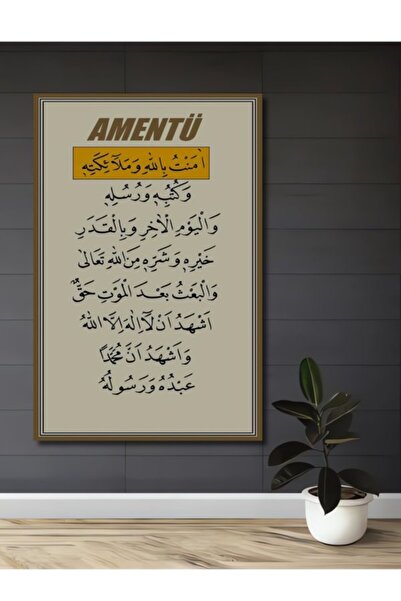 AMENTÜ
اٰمَنْتُ بِاللهِ وَمَلٰٓائِكَتِهٖ
وَكُتُبِهٖ وَرُسُلِهٖ
وَالْيَوْمِ الْاٰخِرِ وَبِالْقَدَرِ
خَيْرِهٖ وَشَرِّهٖ مِنَ اللهِ تَعَالٰى
وَالْبَعْثُ بَعْدَ الْمَوْتِ حَقٌّ
اَشْهَدُ اَنْ لَٓا اِلٰهَ اِلَّا اللهُ
وَاَشْهَدُ اَنَّ مُحَمَّدًا
عَبْدُهُ وَرَسُولُهُ